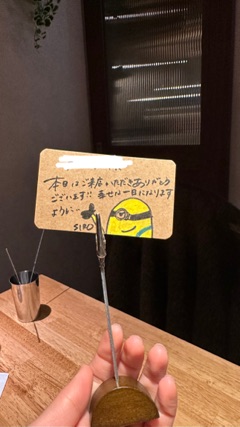 本日はご来店いただきありがとう
ございます!! 幸せな一日になります
ように…